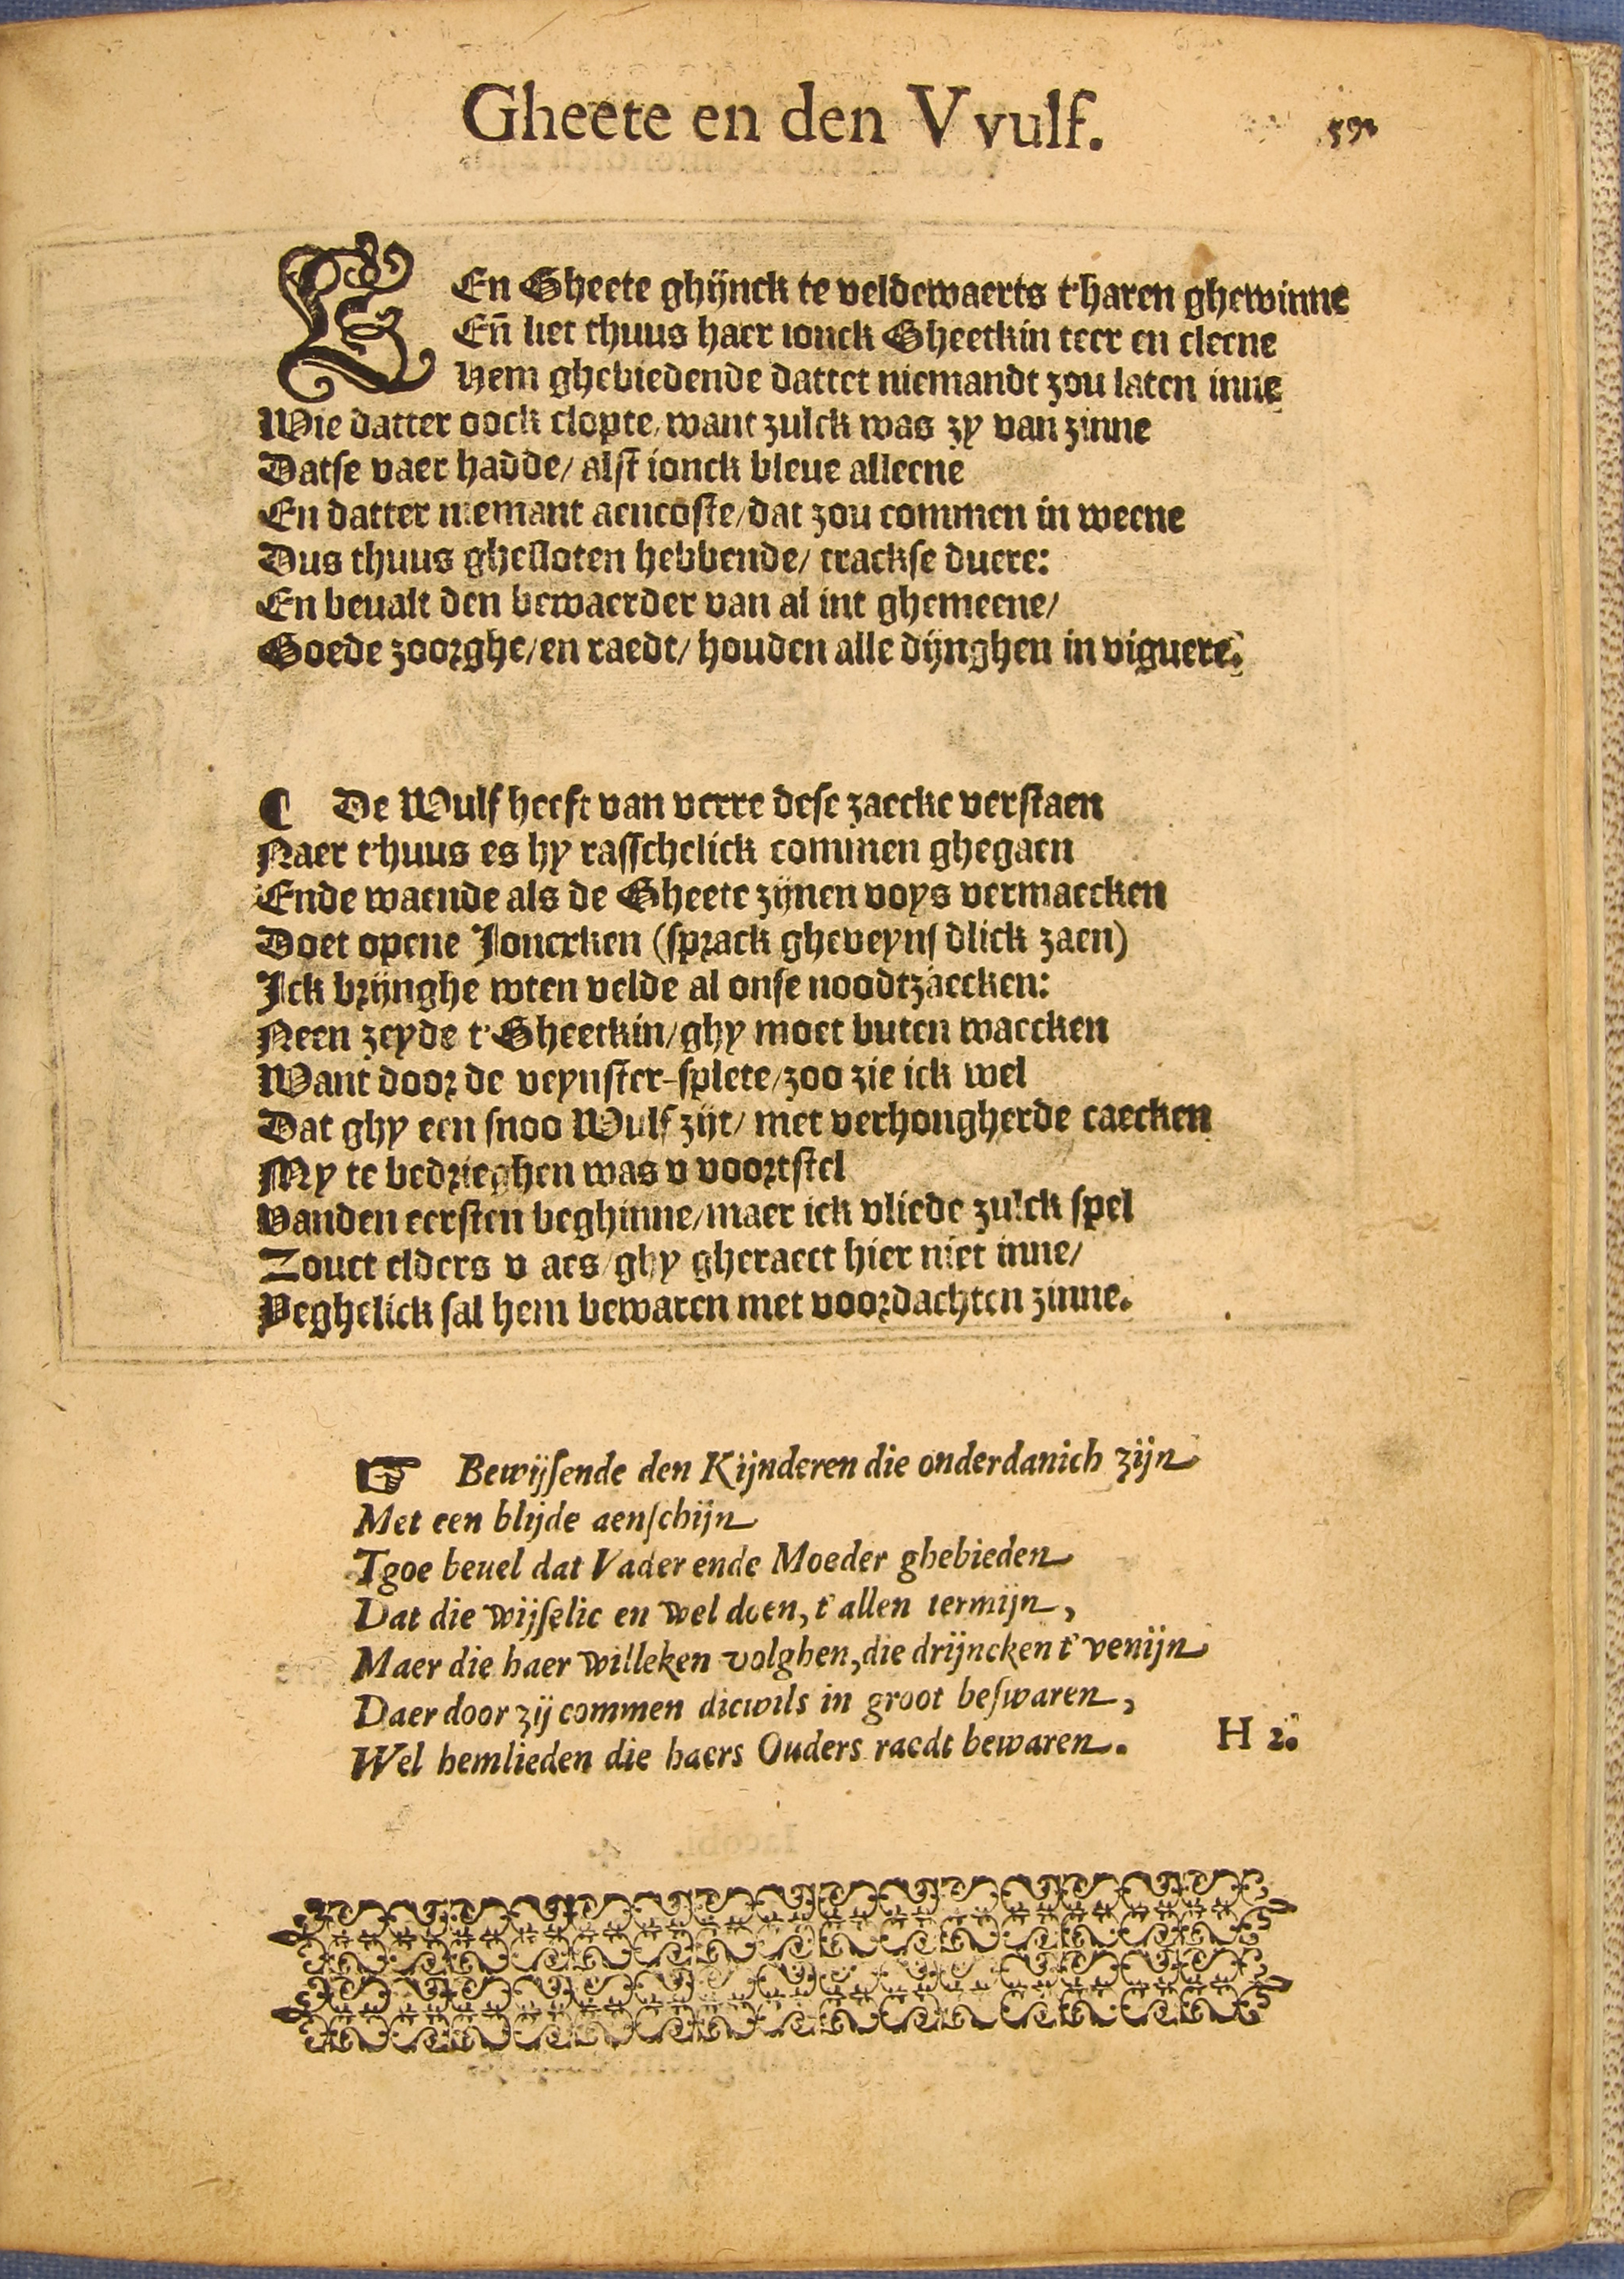 Gheete en den VVulf. 59.
EEn Gheete ghijnck te veldewaerts t'haren ghewinne
En̄ liet thuus haer ionck Gheetkin teer en cleene
Hem ghebiedende dattet niemandt zou laten inne
Wie datter oock clopte/ want zulck was zy van zinne
Datse vaer hadde/ alst ionck bleue alleene
En datter niemant aencoste/ dat zou commen in weene
Dus thuus ghesloten hebbende/ track̄se duere:
En beualt den bewaerder van al int ghemeene/
Goede zoorghe/ en raedt/ houden alle dijnghen in viguere.
¶ De Wulf heeft van verre dese zaecke verstaen
Naer t'huus es hy rasschelick commen ghegaen
Ende waende als de Gheete zijnen voys vermaecken
Doet opene Jonexken (sprack gheveynsdlick zaen)
Jck brijnghe wten velde al onse noodtzaecken:
Neen zeyde t'Gheetkin/ ghy moet buten waecken
Want door de veynster-splete/ zoo zie ick wel
Dat ghy een snoo Wulf zijt/ met verhongherde caecken
My te bedrieghen was v voortstel
Vanden eersten beghinne/ maer ick vliede zulck spel
Zouct elders v aes/ ghy gheraect hier niet inne/
Yeghelick sal hem bewaren met voordachten zinne.
☞ Bewijsende den Kijnderen die onderdanich zijn
Met een blijde aenschijn
Tgoe beuel dat Vader ende Moeder ghebieden
Dat die wijselic en wel doen, t'allen termijn,
Maer die haer willeken volghen, die drijncken t'venijn
Daer door zij commen dicwils in groot beswaren,
Wel hemlieden die haers Ouders raedt bewaren. H 2.